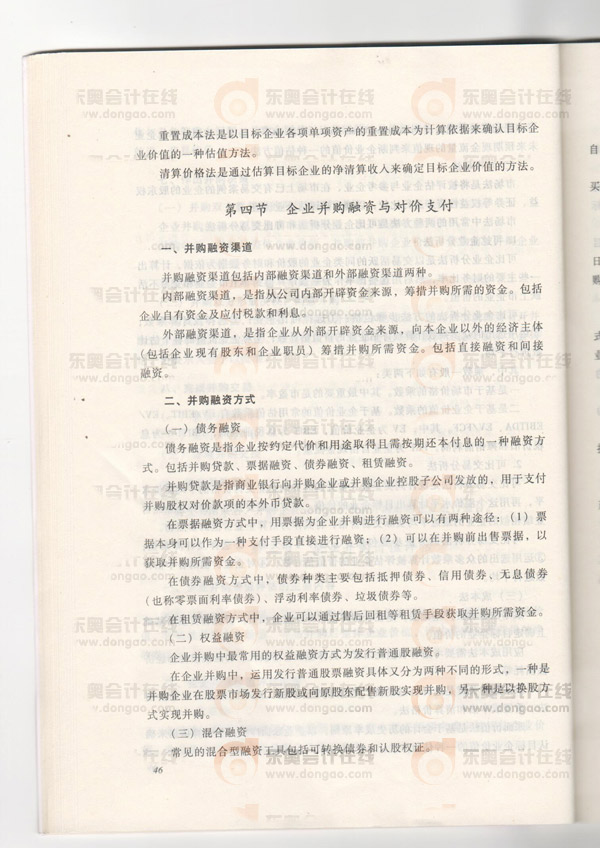 重置成本法是以目标企业各项单项资产的重置成本为计算依据来确认目标企
业价值的一种估值方法。
清算价格法是通过估算目标企业的净清算收入来确定目标企业价值的方法。
第四节 企业并购融资与对价支付
一、并购融资渠道
并购融资渠道包括内部融资渠道和外部融资渠道两种。
内部融资渠道，是指从公司内部开辟资金来源，筹措并购所需的资金。包括
企业自有资金及应付税款和利息。
外部融资渠道，是指企业从外部开辟资金来源，向本企业以外的经济主体
(包括企业现有股东和企业职员) 筹措并购所需资金。包括直接融资和间接
融资。
二、并购融资方式
(一) 债务融资
债务融资是指企业按约定代价和用途取得且需按期还本付息的一种融资方
式。包括并购贷款、票据融资、债券融资、租赁融资。
并购贷款是指商业银行向并购企业或并购企业控股子公司发放的，用于支付
并购股权对价款项的本外币贷款。
在票据融资方式中，用票据为企业并购进行融资可以有两种途径：(1) 票
据本身可以作为一种支付手段直接进行融资；(2) 可以在并购前出售票据，以
获取并购所需资金。
在债券融资方式中，债券种类主要包括抵押债券、信用债券、无息债券
(也称零票面利率债券)、浮动利率债券、垃圾债券等。
在租赁融资方式中，企业可以通过售后回租等租赁手段获取并购所需资金。
(二) 权益融资
企业并购中最常用的权益融资方式为发行普通股融资。
在企业并购中，运用发行普通股票融资具体又分为两种不同的形式，一种是
并购企业在股票市场发行新股或向原股东配售新股实现并购，另一种是以换股方
式实现并购。
(三) 混合融资
常见的混合型融资工具包括可转换债券和认股权证。
46
东奥会计在线
www.dongao.com